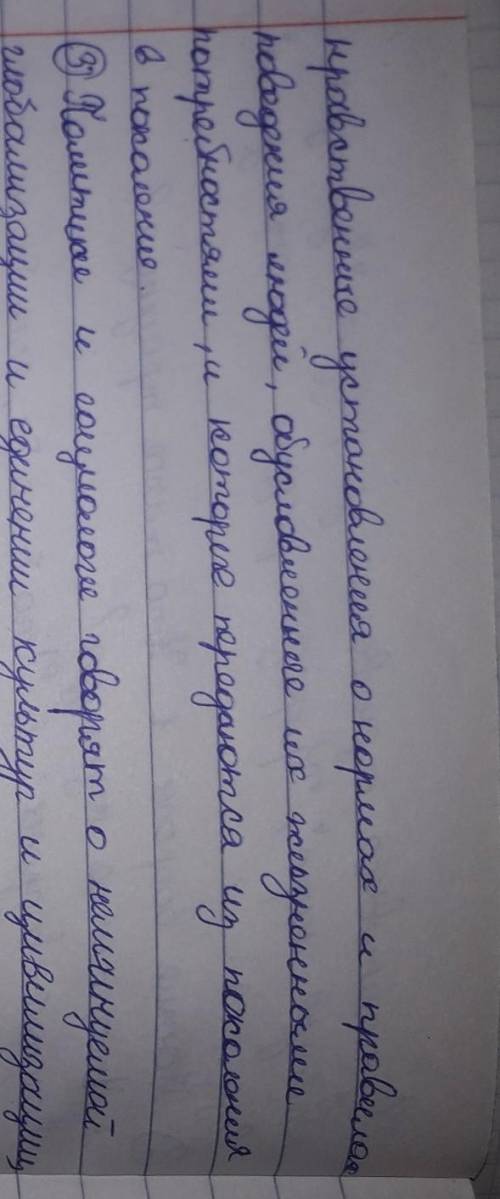 нравственные установления о нормах и правилах
поведения людей, обусловленные их жизненными
потребностями, и которые передаются из поколения
в поколение.
③ Политики и социологи говорят о неминуемой
глобализации и единении культур и цивилизаций,